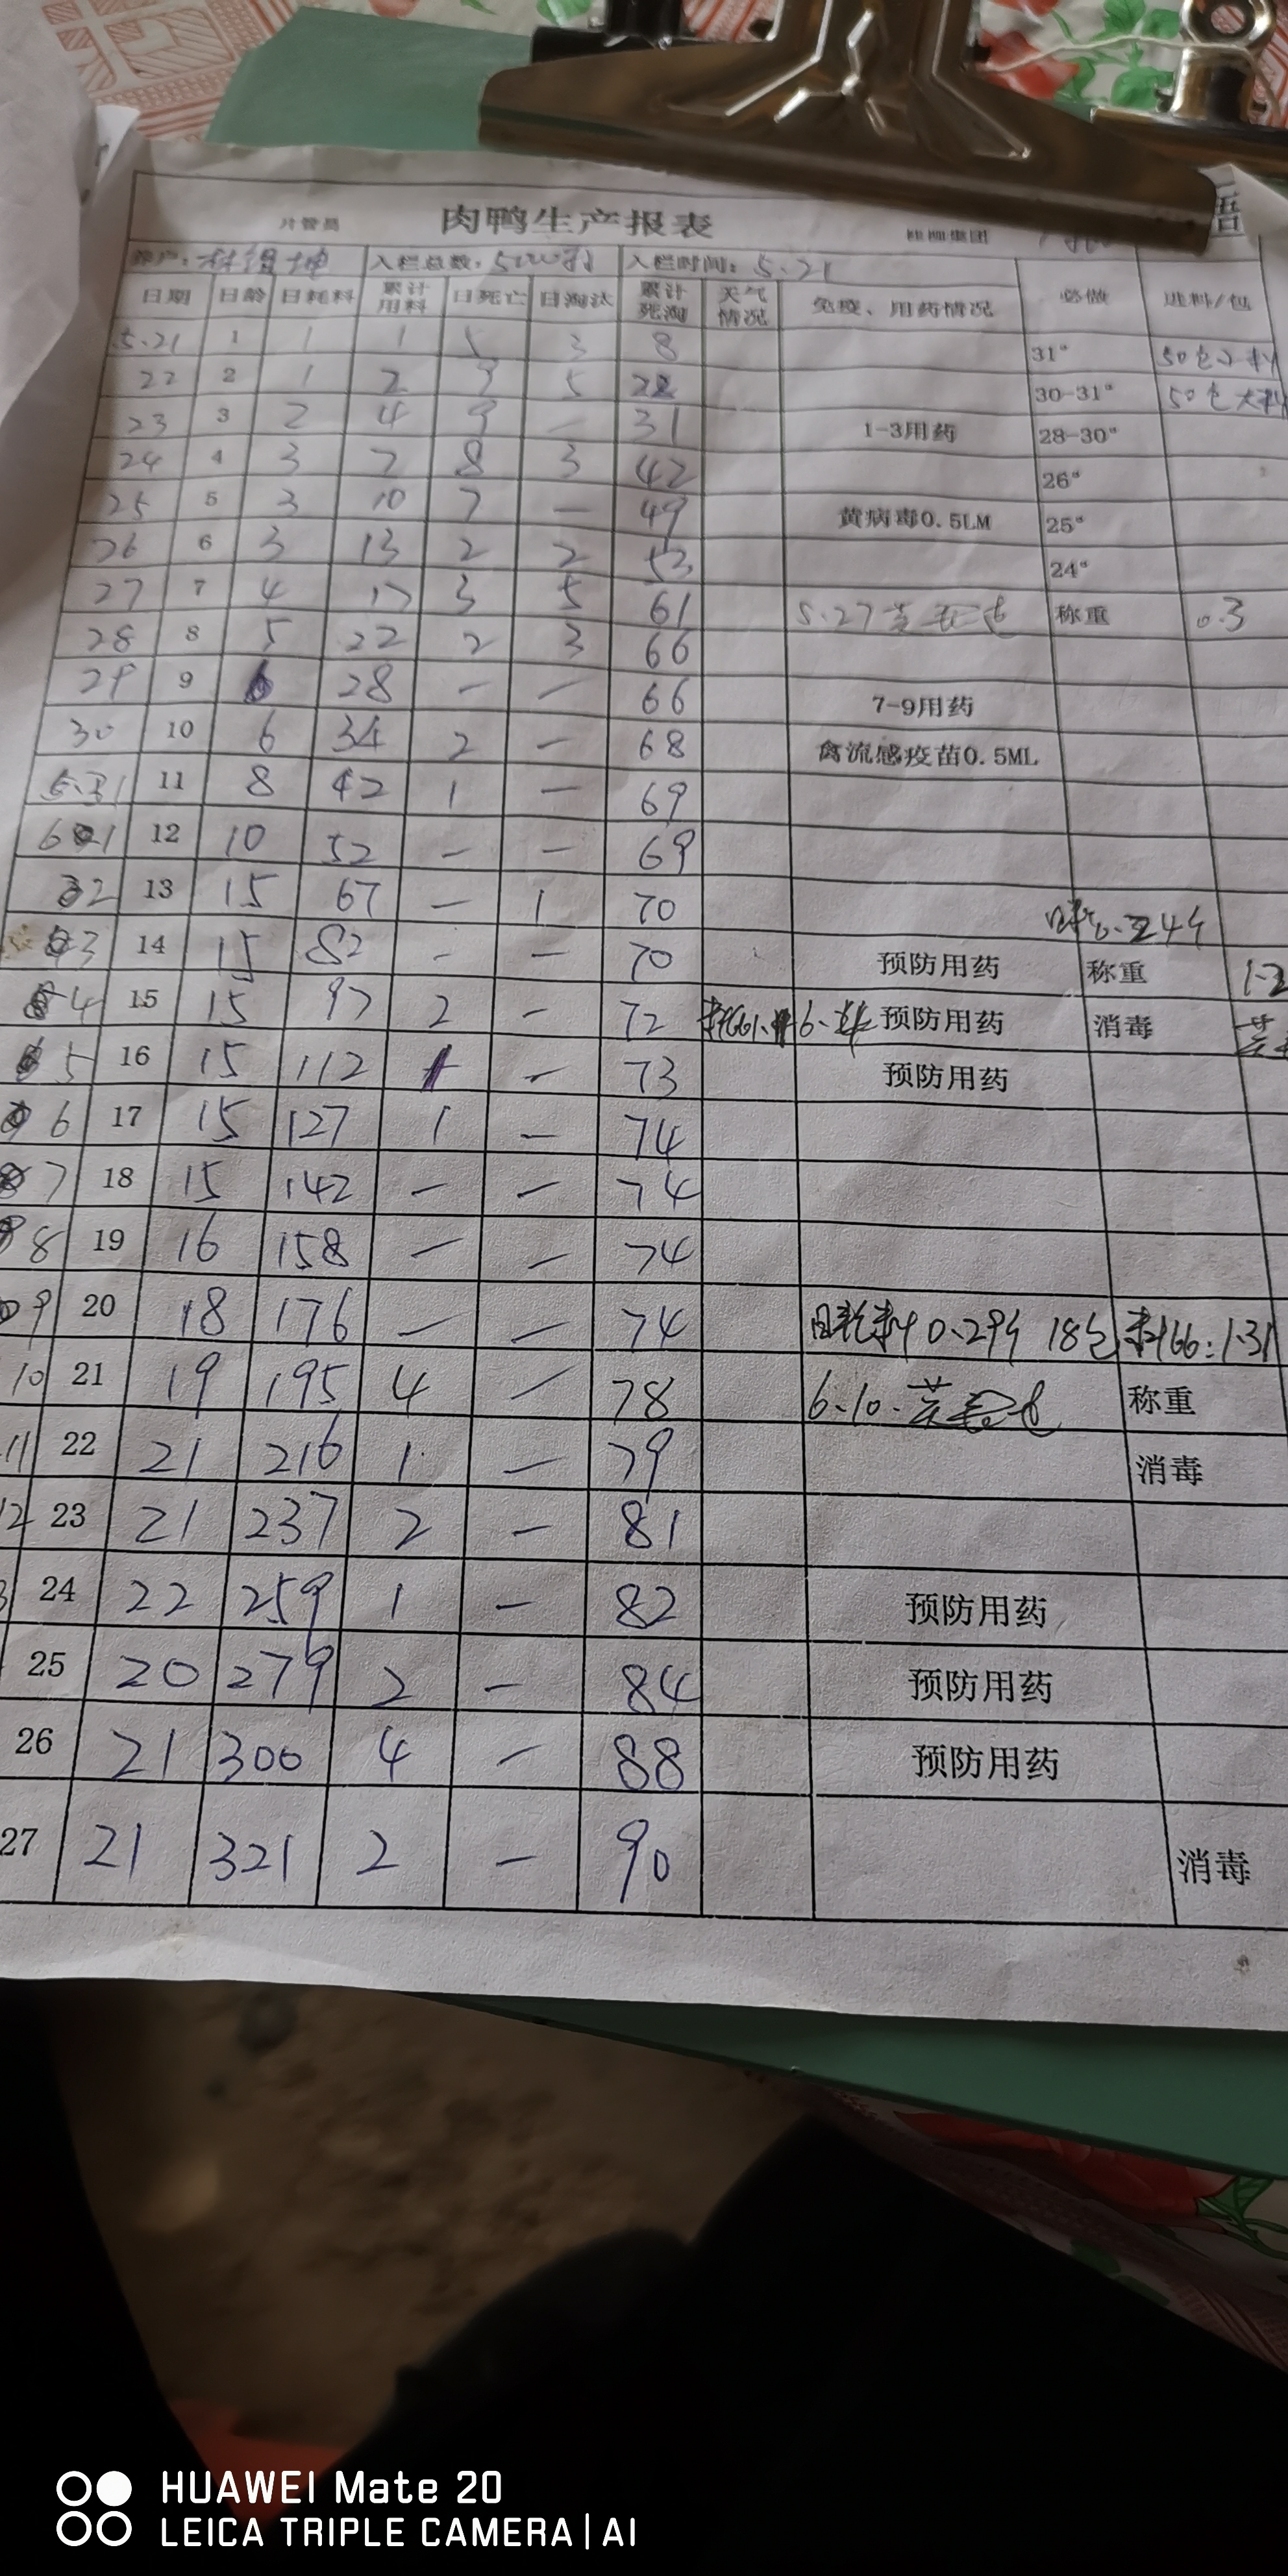 片管员 肉鸭生产报表 集团
养户： 入栏总数：5000羽 入栏时间：5.21
日期 日龄 日耗料 累计用料 日死亡 日淘汰 累计死淘 天气情况 免疫、用药情况 必做 进料/包
5.21 1 1 1 5 3 8 31° 50包小料
22 2 1 2 9 5 22 30-31° 50包大料
23 3 2 4 9 — 31 1-3用药 28-30°
24 4 3 7 8 3 42 26°
25 5 3 10 7 — 49 黄病毒0.5LM 25°
26 6 3 13 2 2 53 24°
27 7 4 17 3 5 61 5.27 称重 0.3
28 8 5 22 2 3 66
29 9 6 28 — — 66 7-9用药
30 10 6 34 2 — 68 禽流感疫苗0.5ML
5.31 11 8 42 1 — 69
6.1 12 10 52 — — 69
2 13 15 67 — 1 70
3 14 15 82 - — 70 预防用药 称重
4 15 15 97 2 - 72 预防用药 消毒
5 16 15 112 1 — 73 预防用药
6 17 15 127 1 — 74
7 18 15 142 — — 74
8 19 16 158 — — 74
9 20 18 176 — — 74 日耗料0.29 18包 料肉1.31
10 21 19 195 4 — 78 6.10. 称重
11 22 21 216 1 — 79 消毒
12 23 21 237 2 — 81
24 22 259 1 — 82 预防用药
25 20 279 2 — 84 预防用药
26 21 300 4 — 88 预防用药
27 21 321 2 — 90 消毒
HUAWEI Mate 20
LEICA TRIPLE CAMERA | AI